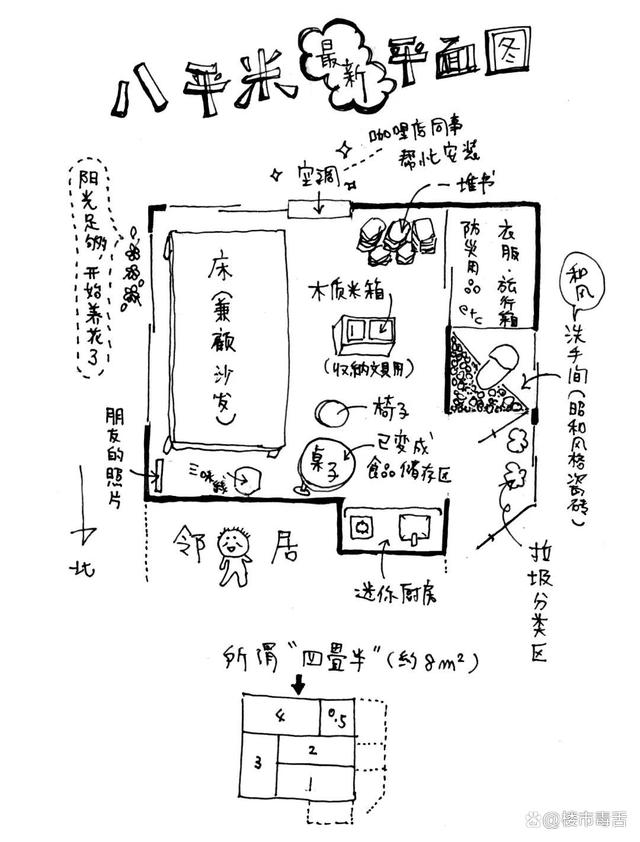 八平米最新平面图
咖哩店同事
帮忙安装
空调
一堆书
阳光足够，开始养花了
床（兼顾沙发）
木质米箱
（收纳文具用）
衣服·旅行箱
防災用品
etc
和风
洗手间（昭和风格瓷砖）
椅子
桌子
已变成
食品储存区
朋友的照片
三味線
北
邻居
迷你厨房
垃圾分类区
所谓“四畳半”（约8m²）
4
0.5
3
2
1
@楼市毒舌